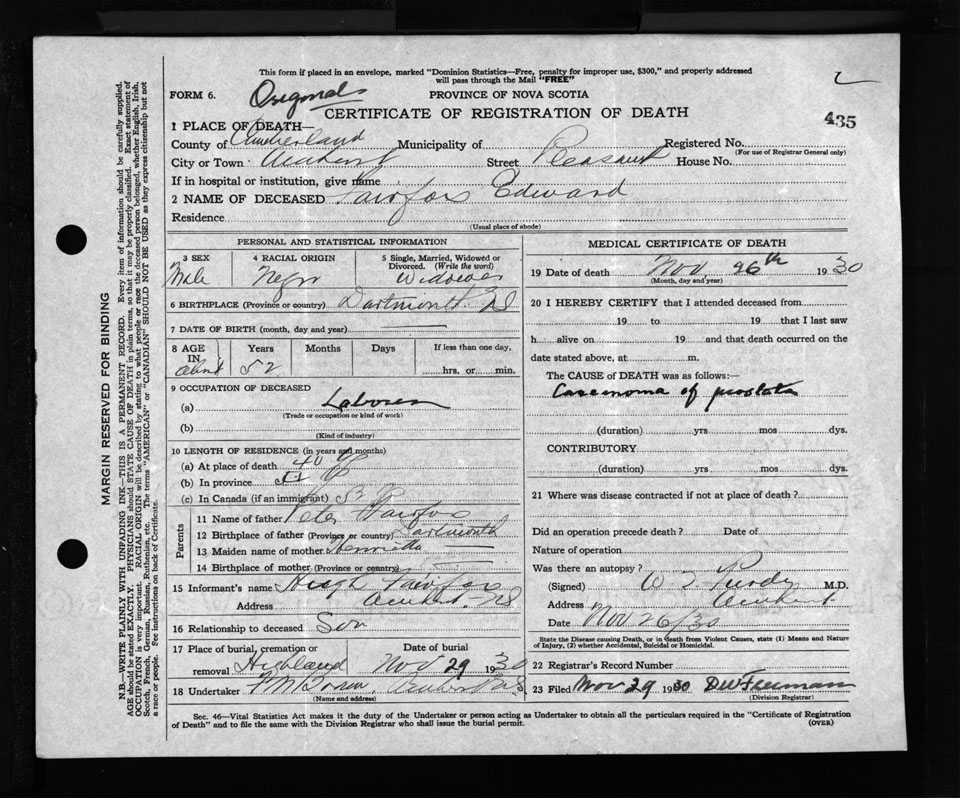 This form if placed in an envelope, marked "Dominion Statistics—Free, penalty for improper use, $300," and properly addressed
will pass through the Mail "FREE"
FORM 6. Original PROVINCE OF NOVA SCOTIA
CERTIFICATE OF REGISTRATION OF DEATH
435
1 PLACE OF DEATH—
County of Cumberland Municipality of Registered No.
(For use of Registrar General only)
City or Town Amherst Street Pleasant House No.
If in hospital or institution, give name
2 NAME OF DECEASED Edward
Residence
(Usual place of abode)
PERSONAL AND STATISTICAL INFORMATION
3 SEX 4 RACIAL ORIGIN 5 Single, Married, Widowed or
Divorced. (Write the word)
Male Negro Widower
6 BIRTHPLACE (Province or country) Dartmouth. NS
7 DATE OF BIRTH (month, day and year)
8 AGE Years Months Days If less than one day,
IN about 52 hrs. or min.
9 OCCUPATION OF DECEASED
(a) Laborer
(Trade or occupation or kind of work)
(b)
(Kind of industry)
10 LENGTH OF RESIDENCE (in years and months)
(a) At place of death 40 y
(b) In province 52 y
(c) In Canada (if an immigrant) 52 y
Parents
11 Name of father Peter
12 Birthplace of father (Province or country) Dartmouth
13 Maiden name of mother Henrietta
14 Birthplace of mother (Province or country)
15 Informant's name Hugh
Address Amherst, NS
16 Relationship to deceased Son
17 Place of burial, cremation or Date of burial
removal Highland Nov 29 1930
18 Undertaker Amherst NS
(Name and address)
MEDICAL CERTIFICATE OF DEATH
19 Date of death Nov. 26th 1930
(Month, day and year)
20 I HEREBY CERTIFY that I attended deceased from
19 to 19 that I last saw
h alive on 19 and that death occurred on the
date stated above, at m.
The CAUSE of DEATH was as follows:—
Carcinoma of prostate
(duration) yrs mos dys.
CONTRIBUTORY
(duration) yrs mos dys.
21 Where was disease contracted if not at place of death?
Did an operation precede death? Date of
Nature of operation
Was there an autopsy?
(Signed) Purdy M.D.
Address Amherst
Date Nov 26/30
State the Disease causing Death, or in death from Violent Causes, state (1) Means and Nature
of Injury, (2) whether Accidental, Suicidal or Homicidal.
22 Registrar's Record Number
23 Filed Nov 29 1930 DW Freeman
(Division Registrar)
Sec. 46—Vital Statistics Act makes it the duty of the Undertaker or person acting as Undertaker to obtain all the particulars required in the "Certificate of Registration
of Death" and to file the same with the Division Registrar who shall issue the burial permit.
(OVER)
MARGIN RESERVED FOR BINDING
N.B.—WRITE PLAINLY WITH UNFADING INK—THIS IS A PERMANENT RECORD. Every item of information should be carefully supplied.
AGE should be stated EXACTLY. PHYSICIANS should STATE CAUSE OF DEATH in plain terms, so that it may be properly classified. Exact statement of
OCCUPATION is very important. RACIAL ORIGIN will be described by stating to what people or race the deceased person belonged, whether English, Irish,
Scotch, French, German, Russian, Ruthenian, etc. The terms "AMERICAN" or "CANADIAN" SHOULD NOT BE USED as they express citizenship but not
a race or people. Fee instructions on back of Certificate.